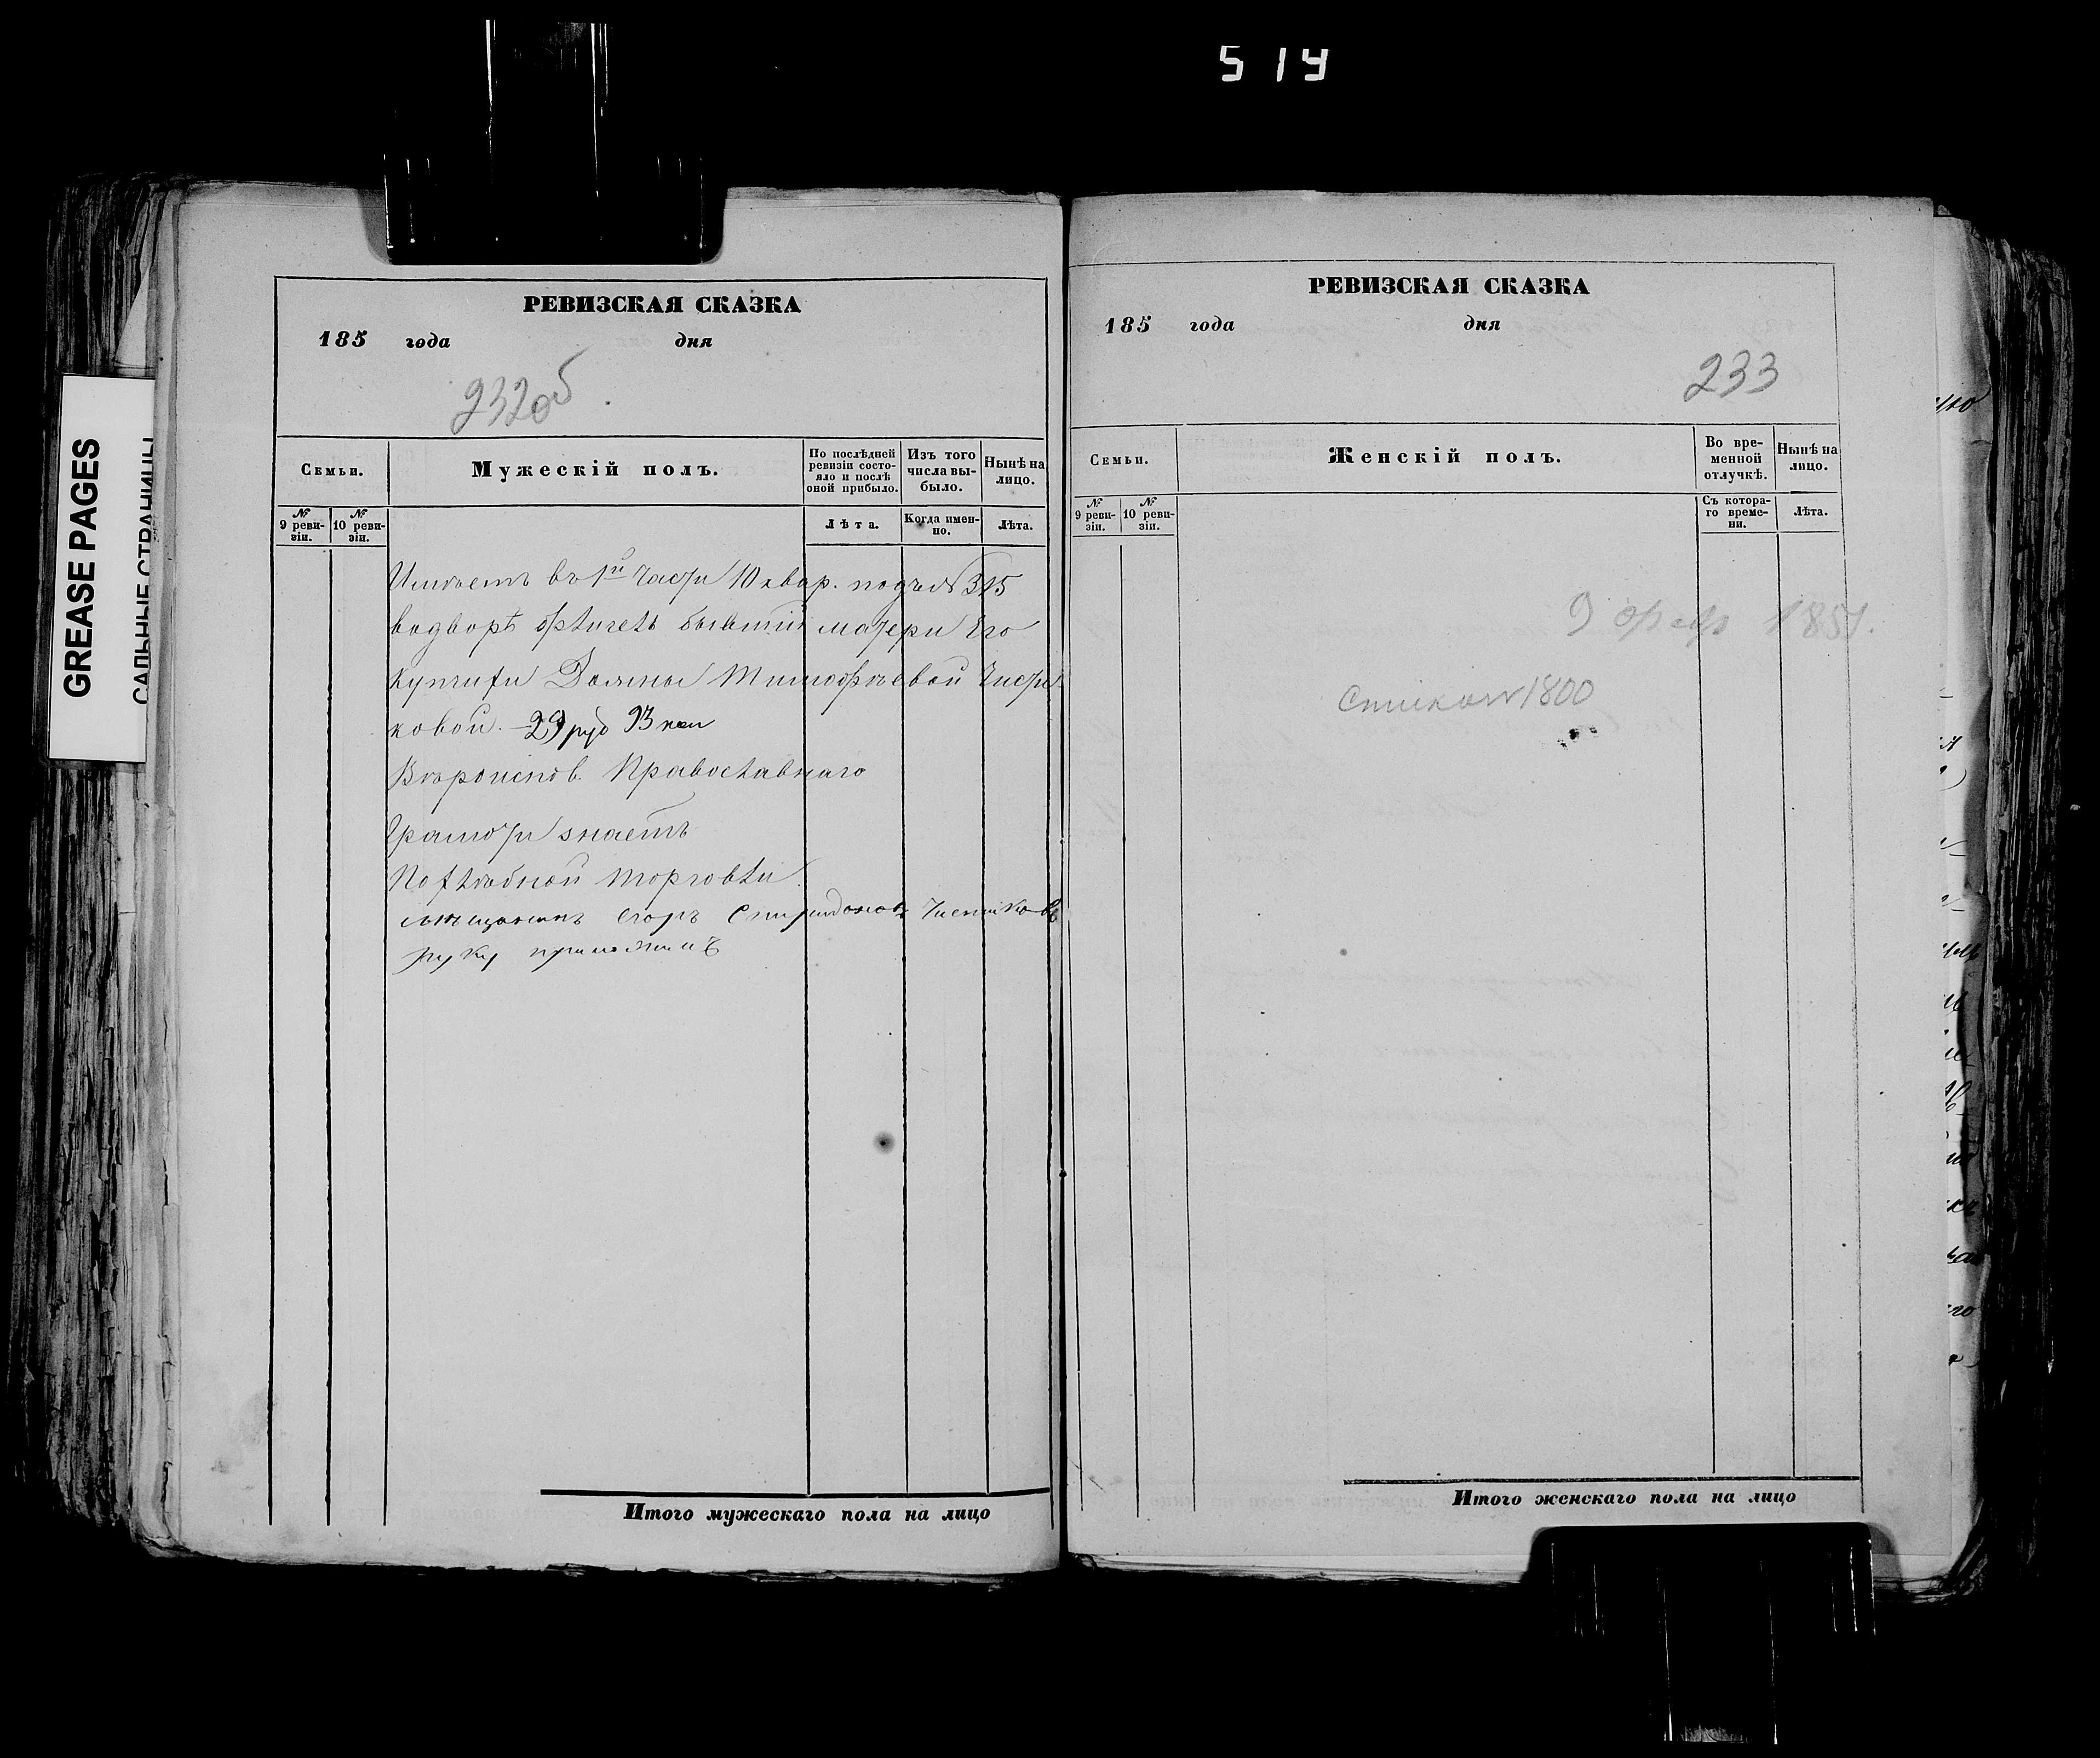 514
GREASE PAGES
САЛЬНЫЕ СТРАНИЦЫ
РЕВИЗСКАЯ СКАЗКА
185 года дня
232об
Семьи.
Мужескій полъ.
По послѣдней ревизіи состояло и послѣ оной прибыло.
Изъ того числа выбыло.
Нынѣ на лицо.
№ 9 ревизіи.
№ 10 ревизіи.
Лѣта.
Когда именно.
Лѣта.
Имѣетъ въ 1й части 10 квар. подъ № 315
матери Его
Тимофѣевой Чисти
ковой. — 29 руб 93 коп
Вѣроиспов. Православнаго
Грамоти знаетъ
По хлѣбной торговли
мѣщанинъ егоръ Спиридоновъ Чистиковъ
руку приложилъ
Итого мужескаго пола на лицо
РЕВИЗСКАЯ СКАЗКА
185 года дня
233
Семьи.
Женскій полъ.
Во временной отлучкѣ.
Нынѣ на лицо.
№ 9 ревизіи.
№ 10 ревизіи.
Съ котораго времени.
Лѣта.
9
№ 1800
Итого женскаго пола на лицо